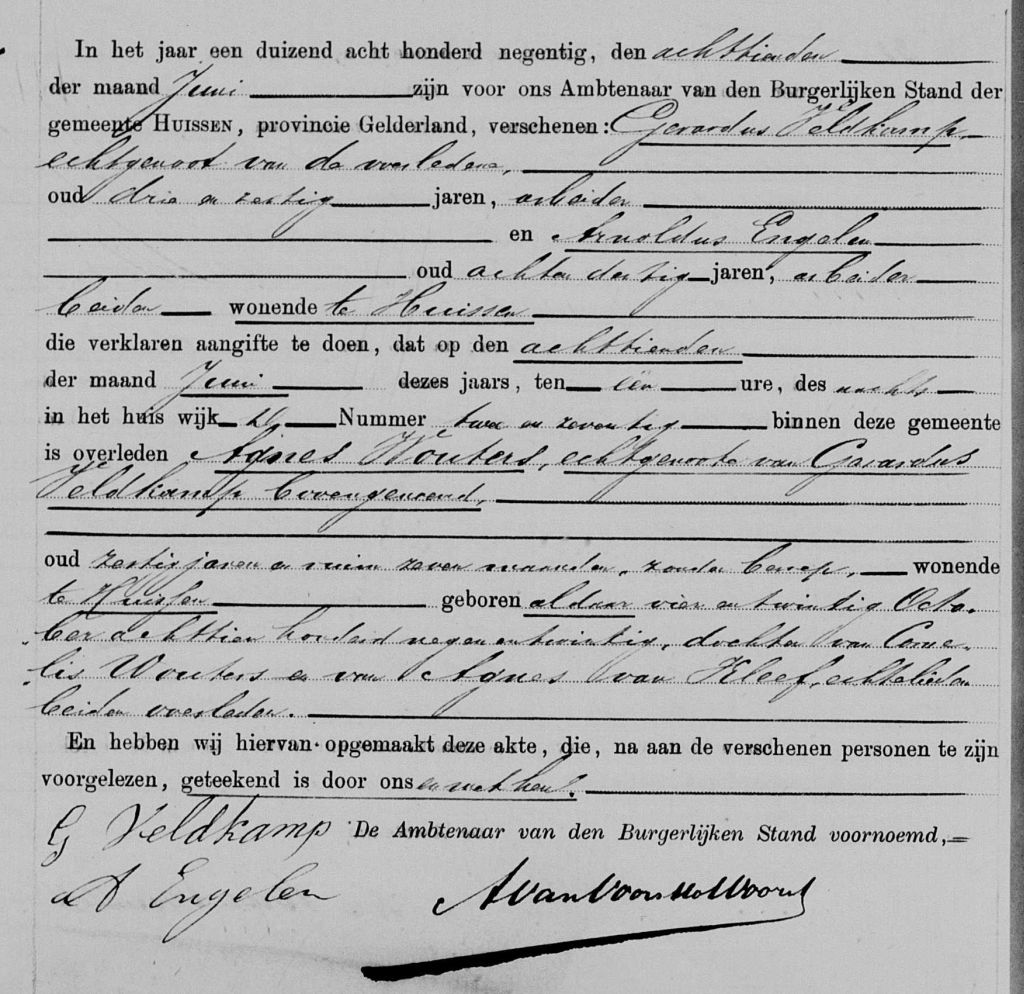 In het jaar een duizend acht honderd negentig, den achttienden
der maand Juni zijn voor ons Ambtenaar van den Burgerlijken Stand der
gemeente HUISSEN, provincie Gelderland, verschenen: Gerardus Veldkamp,
echtgenoot van de overledene,
oud drie en zestig jaren, arbeider
en Arnoldus Engelen
oud acht en dertig jaren, arbeider
beiden wonende te Huissen
die verklaren aangifte te doen, dat op den achttienden
der maand Juni dezes jaars, ten één ure, des nachts
in het huis wijk Nummer twee en zeventig binnen deze gemeente
is overleden Agnes Wouters, echtgenoote van Gerardus
Veldkamp bovengenoemd,
oud zestig jaren en ruim zeven maanden, zonder beroep, wonende
te Huissen geboren aldaar vier en twintig Octo-
ber achttien honderd negen en twintig, dochter van Corne-
lis Wouters en van Agnes van Kleef, echtelieden
beiden overleden.
En hebben wij hiervan opgemaakt deze akte, die, na aan de verschenen personen te zijn
voorgelezen, geteekend is door ons en met hen.
G Veldkamp De Ambtenaar van den Burgerlijken Stand voornoemd,
A Engelen